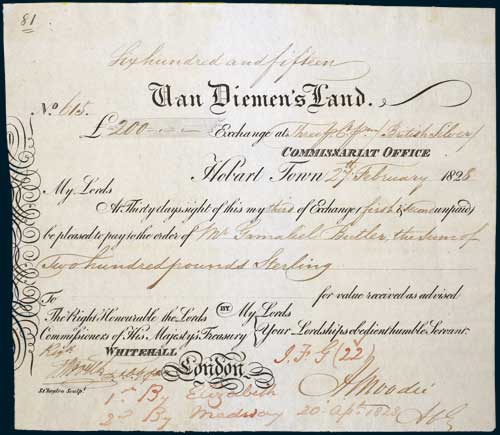 81
Six hundred and fifteen
Van Diemen's Land.
No. 615.
£200 Exchange at Three P Cent British Silver
COMMISSARIAT OFFICE
Hobart Town 27th February 1828
My Lords
At Thirty days sight of this my third of Exchange (first & second unpaid)
be pleased to pay to the order of Mr Gamaliel Butler, the sum of
Two hundred pounds Sterling
for value received as advised
To
The Right Honourable the Lords BY My Lords
Commissioners of His Majesty's Treasury Your Lordships obedient humble Servant:
WHITEHALL
London
J. F. G (22)
A Moodie
1st By Elizabeth
2nd By Medway 20 Apl. 1828